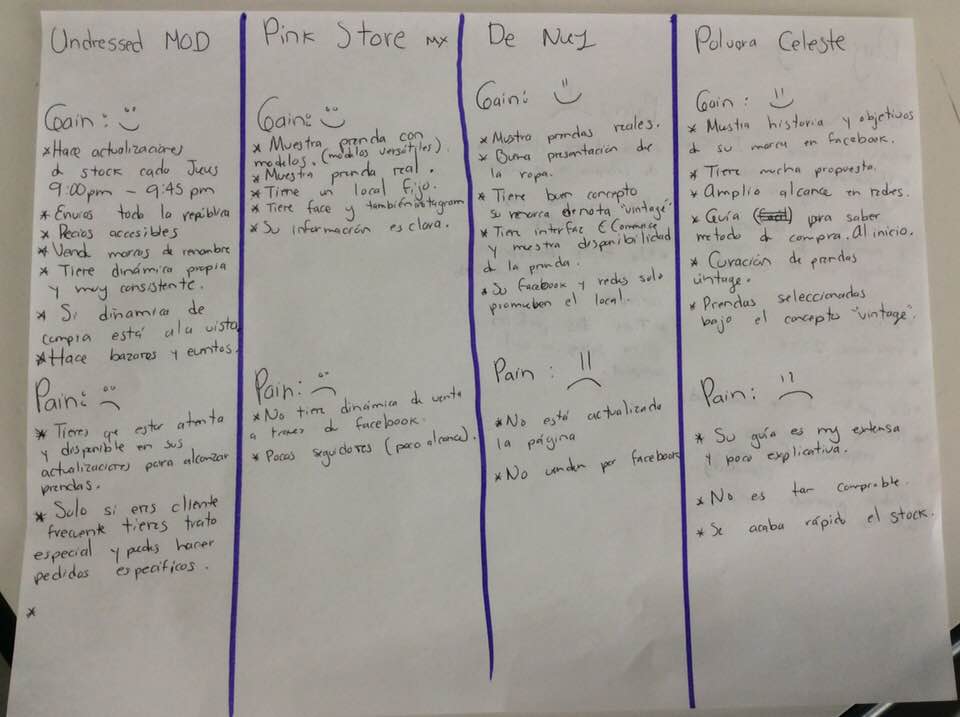 Undressed MOD
Gain:
* Hace actualizaciones
d stock cada Jues
9:00pm - 9:45 pm
* Envios todo la república
* Recios accesibles
* Vend marcas de renombre
* Tiene dinámica propia
y muy consistente.
* Si dinamica de
compra está a la vista.
* Hace bazares y eventos.
Pain:
* Tienes que estar atenta
y disponible en sus
actualizaciones para alcanzar
prendas.
* Solo si eres cliente
frecuente tienes trato
especial y puedes hacer
pedidos especificos.
*
Pink Store MX
Gain:
* Muestra prenda con
modelos. (modelos versátiles).
* Muestra prenda real.
* Tiene un local fijo.
* Tiene face y también instagram
* Su información es clara.
Pain:
* No tiene dinámica de venta
a traves d facebook.
* Pocos seguidores (poco alcance).
De Nuez
Gain:
* Mustra prendas reales.
* Buena presentación de
la ropa.
* Tiere buen concepto
su remarca denota "vintage"
* Tiene interfaz E Commerce
y mustra disponibilidad
d la prenda.
* Su facebook y redes solo
promueben el local.
Pain:
* No está actualizada
la página
* No venden por facebook
Polvora Celeste
Gain:
* Mustra historia y objetivos
d su marca en facebook.
* Tiere mucha propuesta.
* Amplio alcance en redes.
* Guía para saber
metodo d compra. Al inicio.
* Curación de prendas
vintage.
* Prendas seleccionadas
bajo el concepto "vintage".
Pain:
* Su guía es my extensa
y poco explicativa.
* No es tan comprable.
* Se acaba rápido el stock.